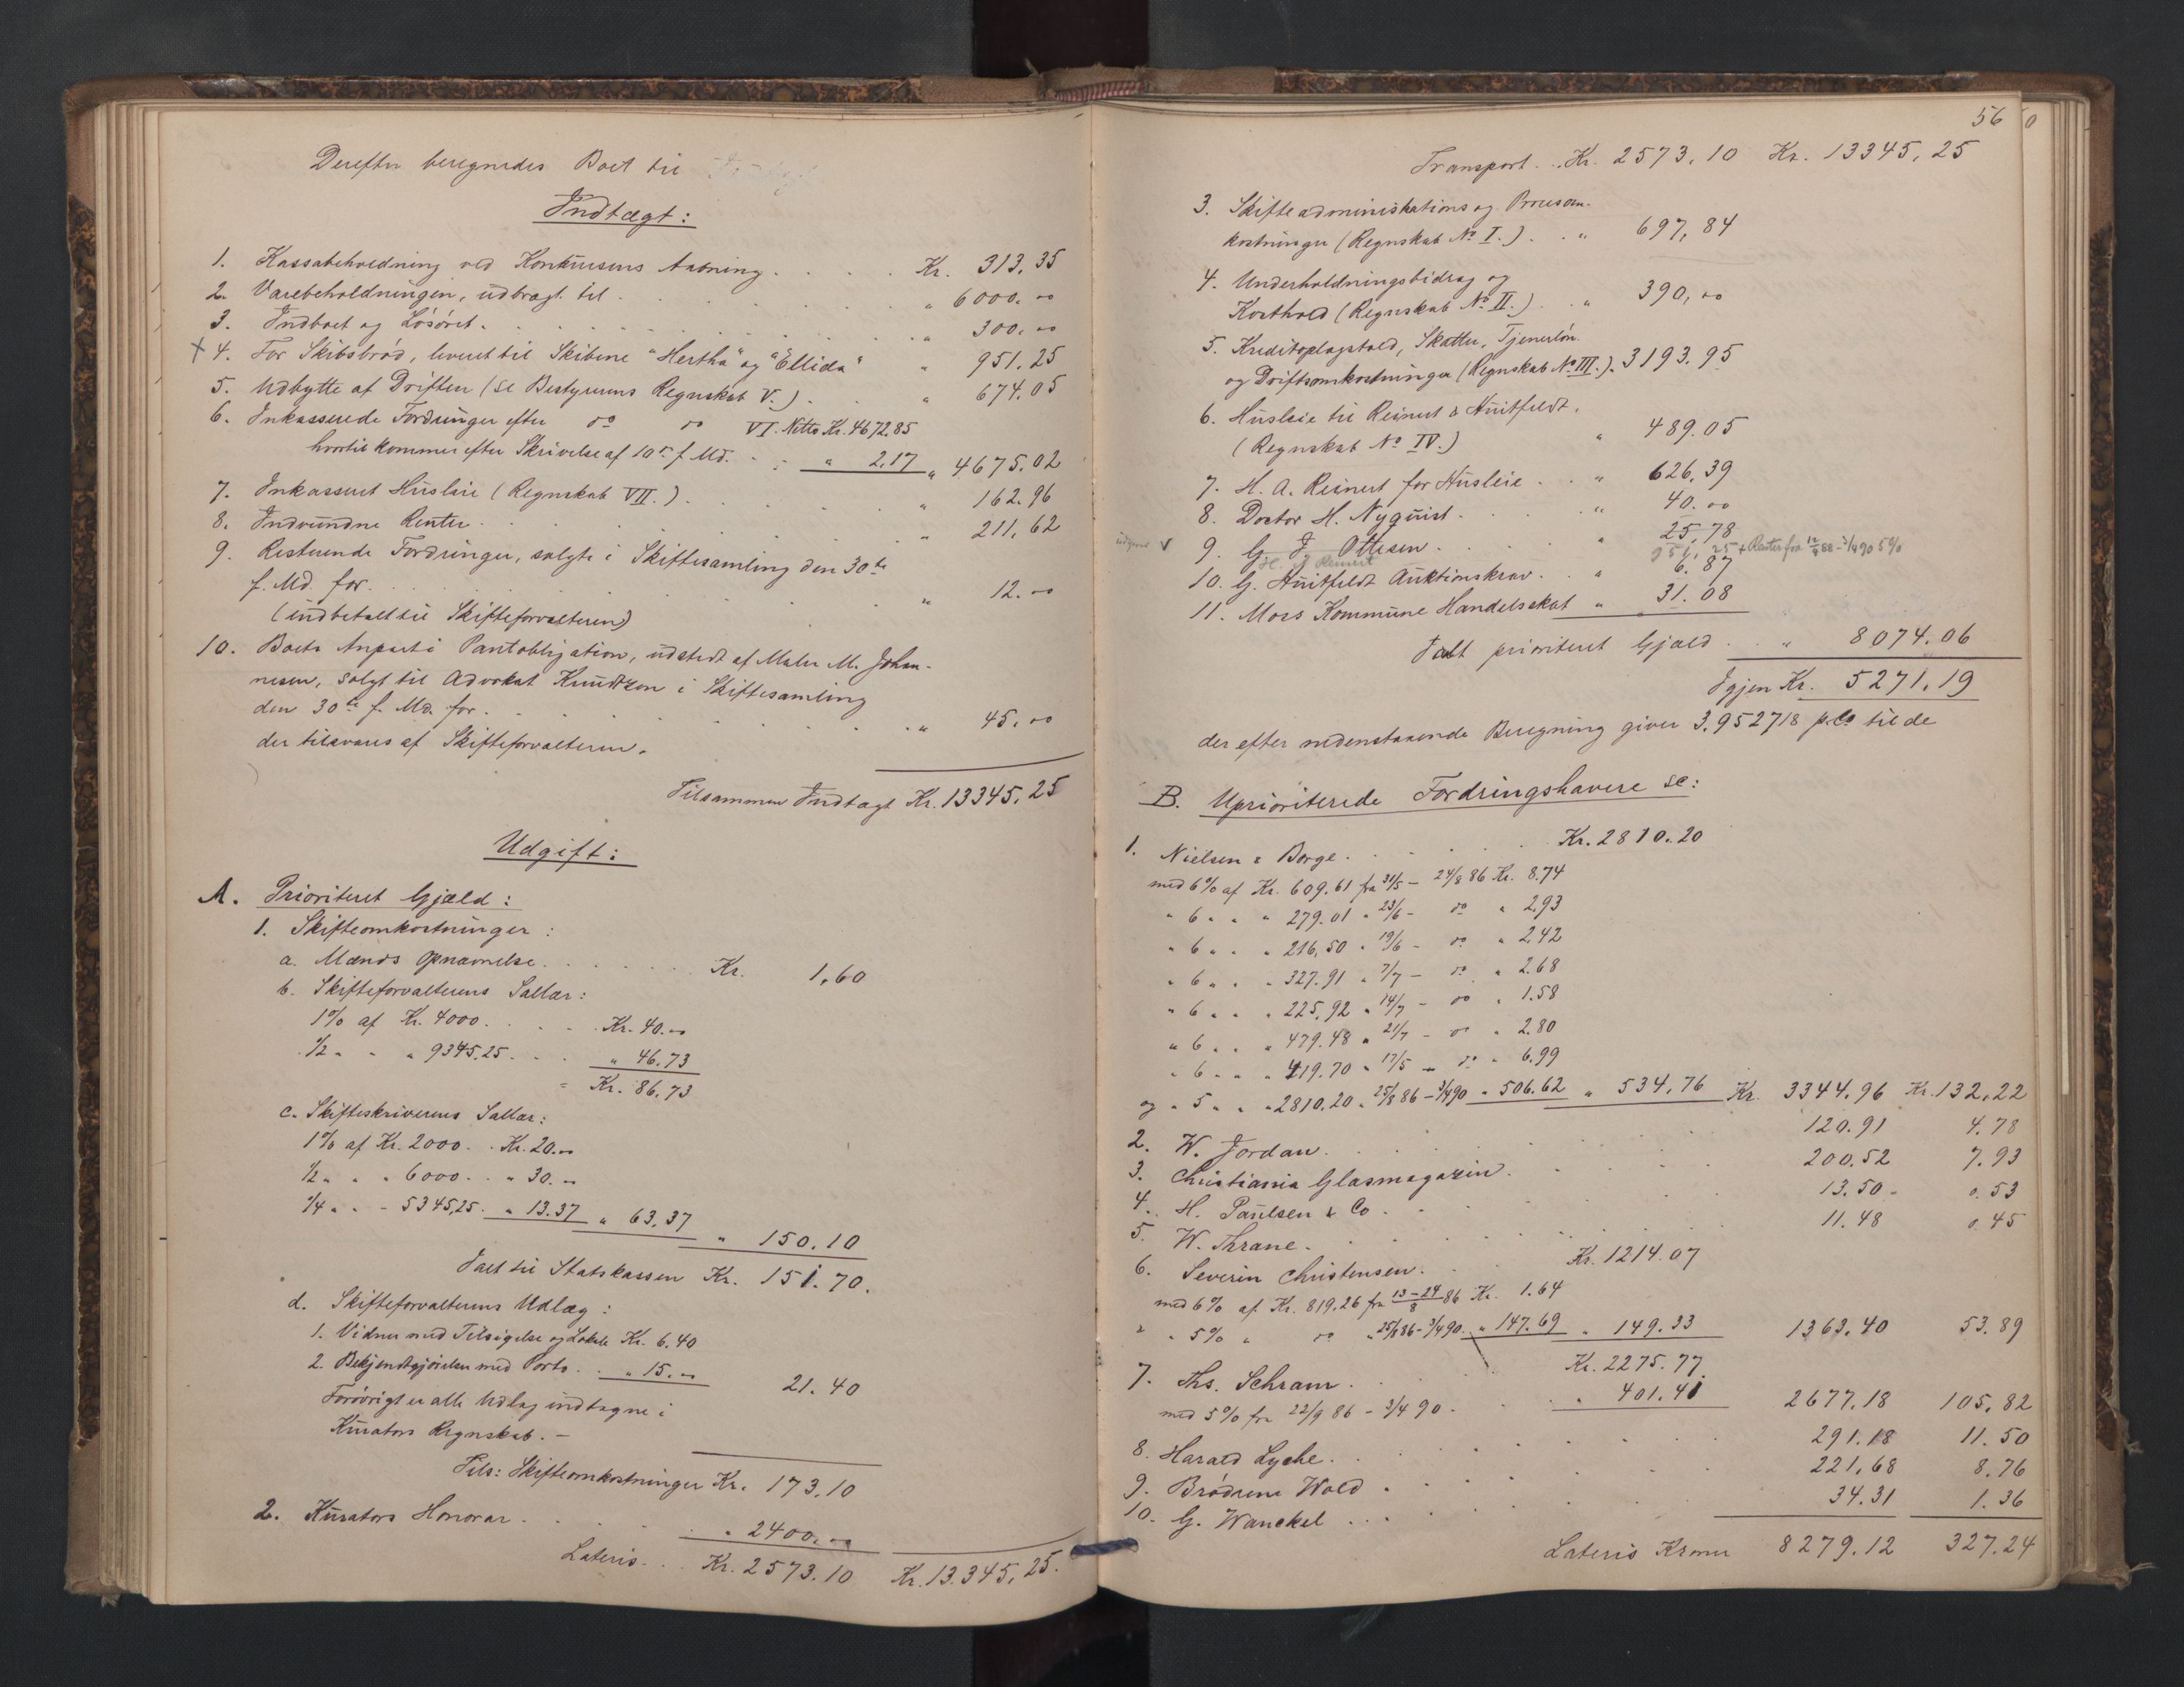 Derefter beregnedes Boet til
Indtægt:
1. Kassabeholdning ved Konkursens Aabning . . . . Kr. 313,35
2. Varebeholdningen, udbragt til . . . . " 6000.00
3. Indboet og Løsøret . . . . " 300.00
+ 4. For Skibsbrød, leveret til Skibene "Hertha" og "Ellida" " 951.25
5. Udbytte af Driften (se Bestyrerens Regnskab V.) . . " 674.05
6. Inkasserede Fordringer efter do do VI. Netto Kr. 4672,85
hvortil kommer efter Skrivelse af 10de f. Md. . . " 2,17 " 4675.02
7. Inkasseret Husleie (Regnskab VII.) . . . . " 162.96
8. Indvundne Renter . . . . " 211,62
9. Resterende Fordringer, solgte i Skiftesamling den 30te
f. Md. for . . . . " 12.00
(indbetalt til Skifteforvalteren)
10. Boets Anpart i Pantobligation, udstedt af Maler M. Johan-
nesen, solgt til Advokat Knudtzon i Skiftesamling
den 30te f. Md. for . . . . " 45.00
der tilsvares af Skifteforvalteren.
Tilsammen Indtægt Kr. 13345,25
Udgift:
A. Prioriteret Gjæld:
1. Skifteomkostninger:
a. Mænds Opnævnelse . . . . Kr. 1,60
b. Skifteforvalterens Sallær:
1% af Kr. 4000 . . . . Kr. 40.00
1/2 " " " 9345,25 . . . " 46.73
= Kr. 86,73
c. Skifteskriverens Sallær:
1% af Kr. 2000 . . Kr. 20.00
1/2 " " " 6000 . . " 30.00
1/4 " " - 5345,25 . " 13.37 " 63,37
" 150.10
Ialt til Statskassen Kr. 151.70.
d. Skifteforvalterens Udlæg:
1. Vidner med Tilsigelse og Lokale Kr. 6.40
2. Bekjendtgjørelser med Porto . . " 15.00 21.40
Forøvrigt er alle Udlæg indtagne i
Kurators Regnskab. —
Tils: Skifteomkostninger Kr. 173.10
2. Kurators Honorar . . . . " 2400.00
Lateris . . . Kr. 2573.10 Kr. 13.345,25.
56
0
Transport . . . Kr. 2573,10 Kr. 13345,25
3. Skifteadministrations og Procesom-
kostninger (Regnskab No I.) . . " 697,84
4. Underholdningsbidrag og
Kosthold (Regnskab No II.) . . " 390,00
5. Kreditoplagstold, Skatter, Tjenerløn
og Driftsomkostninger (Regnskab No III.) " 3193.95
6. Husleie til Reinert & Huitfeldt.
(Regnskab No IV.) " 489.05
7. H. A. Reinert for Husleie . . " 626,39
8. Doctor H. Nyquist . . . . " 40.00
v 9. G J Ottesen . . . . " 25,78
H. A Reinert 951,25 + Renter fra 12/9 88 - 3/4 90 5%
10. G. Huitfeldt Auktionskrav . . " 6.87
11. Moss Kommune Handelsskat " 31.08
Ialt prioriteret Gjæld . . " 8074.06
Igjen Kr. 5271,19
der efter nedenstaaende Beregning giver 3,952718 p.Co til de
B. Uprioriterede Fordringshavere sc:
1. Nielsen & Borge . . . . Kr. 2810.20
med 6% af Kr. 609.61 fra 31/5 - 24/8 86 Kr. 8.74
" 6 " " " 279.01 " 23/6 - do " 2,93
" 6 " " " 216,50 " 19/6 - do " 2,42
" 6 " " " 327.91 " 7/7 - do " 2.68
" 6 " " " 225,92 " 14/7 - do " 1.58
" 6 " " " 479.48 " 21/7 - do " 2.80
" 6 " " " 419.70 " 17/5 - do " 6.99
og " 5 " " " 2810,20 " 25/8 86 - 3/4 90 " 506.62 " 534,76 Kr. 3344,96 Kr. 132,22
2. W. Jordan . . . . 120.91 4.78
3. Christiania Glasmagazin . . . . 200.52 7.93
4. H. Paulsen & Co . . . . 13.50 - 0.53
5. W. Thrane . . . . 11.48 0.45
6. Severin Christensen . . Kr. 1214.07
med 6% af Kr. 819.26 fra 13-24/8 86 Kr. 1.64
" " 5% " do " 25/8 86 - 3/4 90 " 147.69 " 149.33 1363.40 53.89
7. Ths. Schram . . . . Kr. 2275.77
med 5% fra 22/9 86 - 3/4 90 . . . " 401.41 2677.18 105.82
8. Harald Lyche . . . . 291.18 11.50
9. Brødrene Wold . . . . 221,68 8.76
10. G. Wanckel . . . . 34.31 1.36
Lateris Kroner 8279.12 327.24